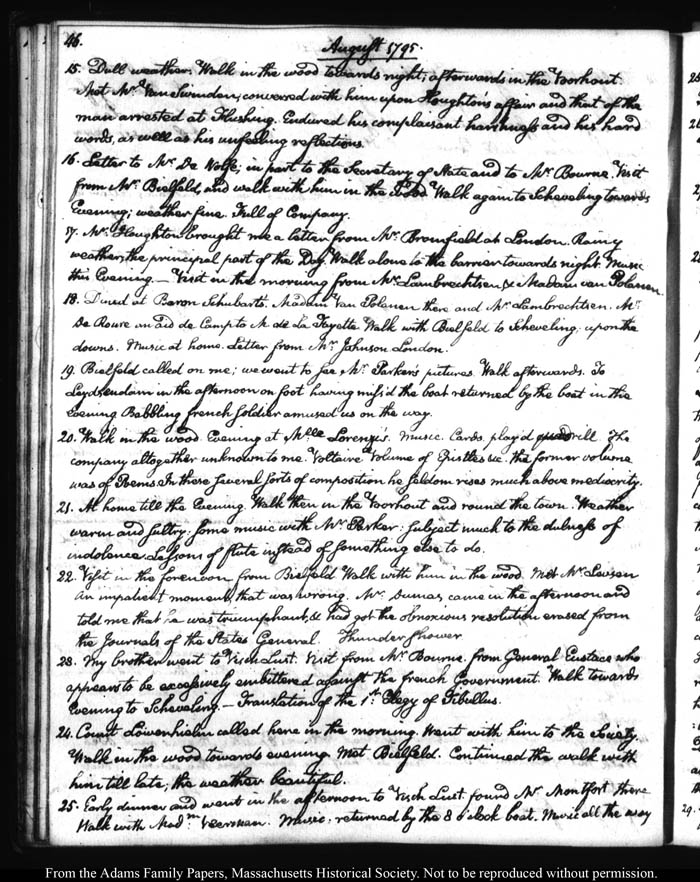 46.
August 1795.
15. Dull weather. Walk in the wood towards night; afterwards in the Voorhout
Met Mr. Van Swinden; conversed with him upon Houghton's affair and that of the
man arrested at Flushing. Endured his complaisant harshness and his hard
words, as well as his unfeeling reflections.
16. Letter to Mr. De Wolfe; in part to the Secretary of State and to Mr. Bourne. Visit
from Mr. Bielfeld, and walk with him in the Wood Walk again to Scheveling towards
Evening; weather fine. Full of Company.
17. Mr. Houghton brought me a letter from Mr. Bromfield at London. Rainy
weather, the principal part of the Day. Walk alone to the barrier towards night. Music
this Evening. — Visit in the morning from Mr. Lambrechtsen & Madam van Polanen.
18. Dined at Baron Schubarts. Madam Van Polanen there and Mr. Lambrechtsen. Mr.
De Rouse an aid de Camp to M. de La Fayette Walk with Bielfeld to Scheveling; upon the
downs. Music at home. Letter from Mr. Johnson London.
19. Bielfeld called on me; we went to see Mr. Parker's pictures. Walk afterwards. To
Leydsendam in the afternoon on foot having miss'd the boat returned by the boat in the
Evening Babbling french soldier amused us on the way.
20. Walk in the wood Evening at Mlle. Lorenzi's. Music. Cards. play'd quadrill. The
company altogether unknown to me. Voltaire Volume of Epistles &c. the former volume
was of Poems. In these several sorts of composition he seldom rises much above mediocrity.
21. At home till the Evening. Walk then in the Voorhout and round the town. Weather
warm and sultry. Some music with Mr. Parker: subject much to the dulness of
indolence. Lessons of flute instead of something else to do.
22. Visit in the forenoon from Bielfeld Walk with him in the wood. Met Mr. Lawson
An impatient moment, that was wrong. Mr. Dumas came in the afternoon and
told me that he was triumphant, & had got the obnoxious resolution erased from
the Journals of the States General. Thunder shower
23. My brother went to Visch Lust. Visit from Mr. Bourne. from General Eustace who
appears to be excessively embittered against the french Government. Walk towards
Evening to Scheveling. — Translation of the 1st. Elegy of Tibullus.
24. Count Löwenhielm called here in the morning. Went with him to the Society.
Walk in the wood towards evening. Met Bielfeld. Continued the walk with
him till late; the weather beautiful.
25. Early dinner and went in the afternoon to Visch Lust. found Mr. Montfort there
Walk with Madm. Veerman. Music; returned by the 8 o'clock boat. Music all the way
29.
From the Adams Family Papers, Massachusetts Historical Society. Not to be reproduced without permission.